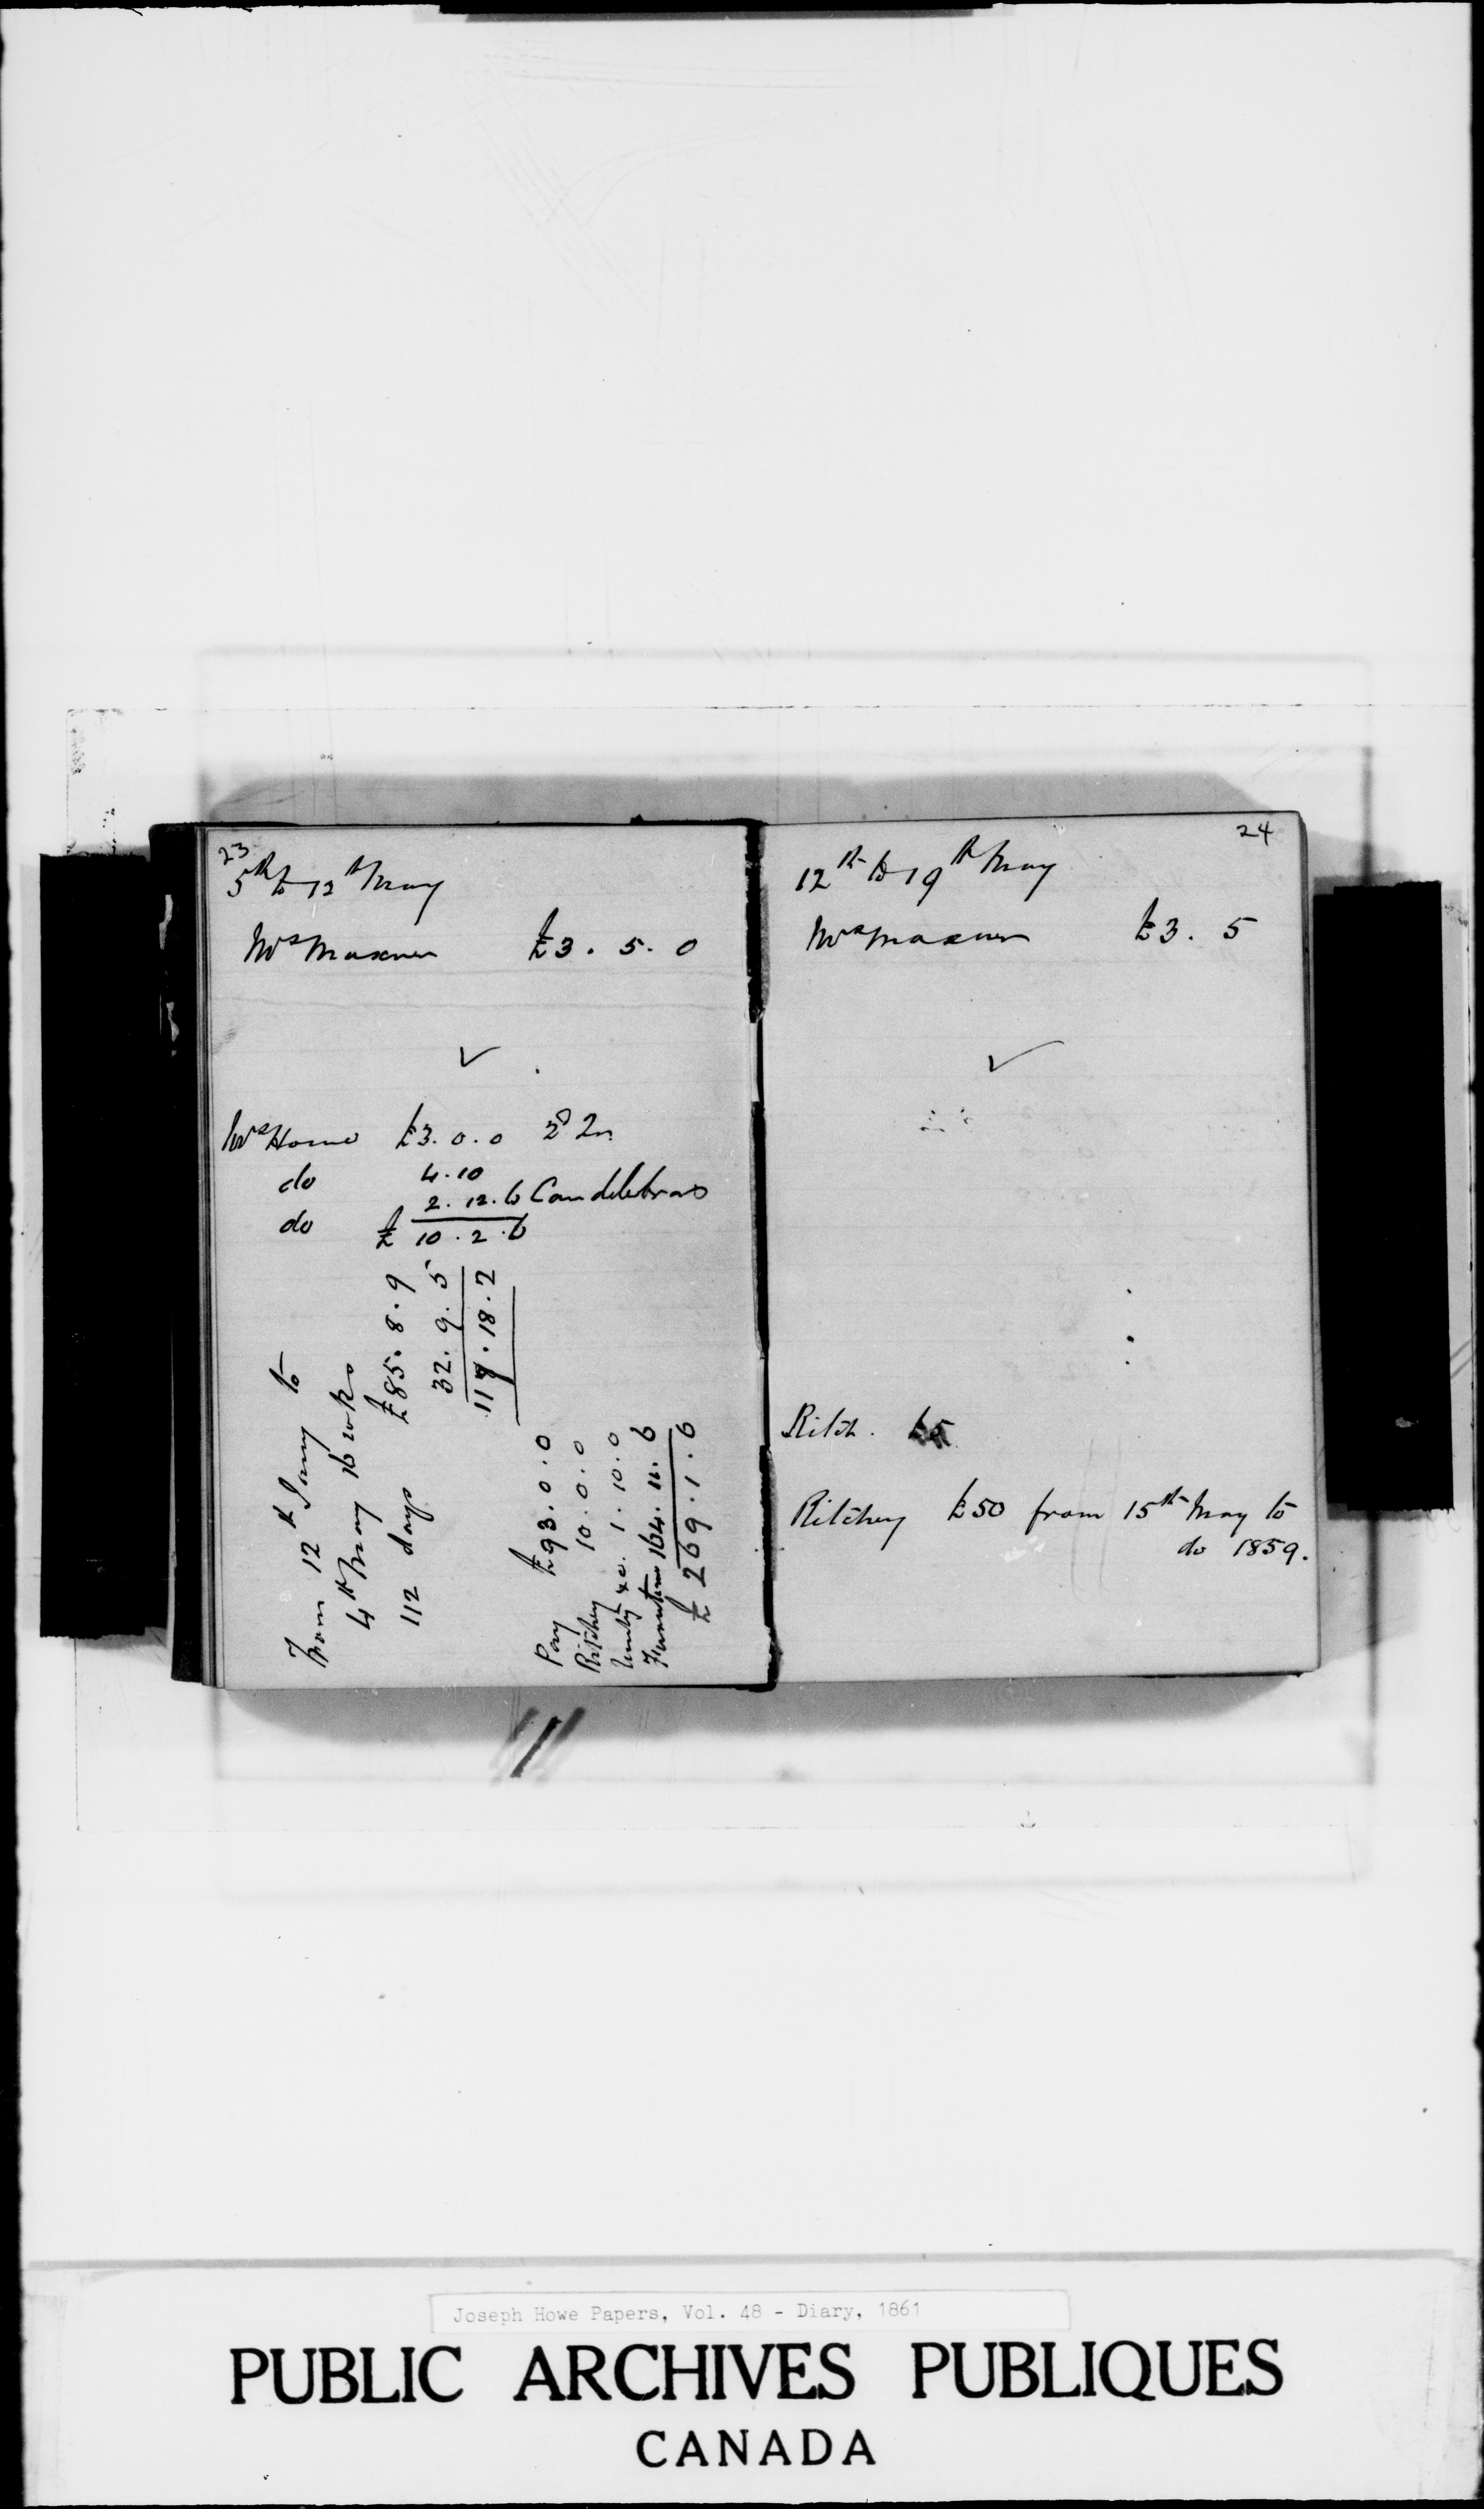 23
5th to 12th May
Mrs Maxner £3. 5. 0
✓
Mrs Howe £3. 0. 0
do 4. 10
2. 12. 6 Candelebras
do £ 10. 2. 6
From 12th Jany to
4th May 16 wks
112 days £85. 8. 9
32. 9. 5
117. 18. 2
Pay £93. 0. 0
Ritchey 10. 0. 0
&c. 1. 10. 0
Furniture 164. 11. 6
£ 269. 1. 6
24
12th to 19th May
Mrs Maxner £3. 5
✓
Ritch. £5
Ritchey £50 from 15th May to
do 1859.
Joseph Howe Papers, Vol. 48 - Diary, 1861
PUBLIC ARCHIVES PUBLIQUES
CANADA